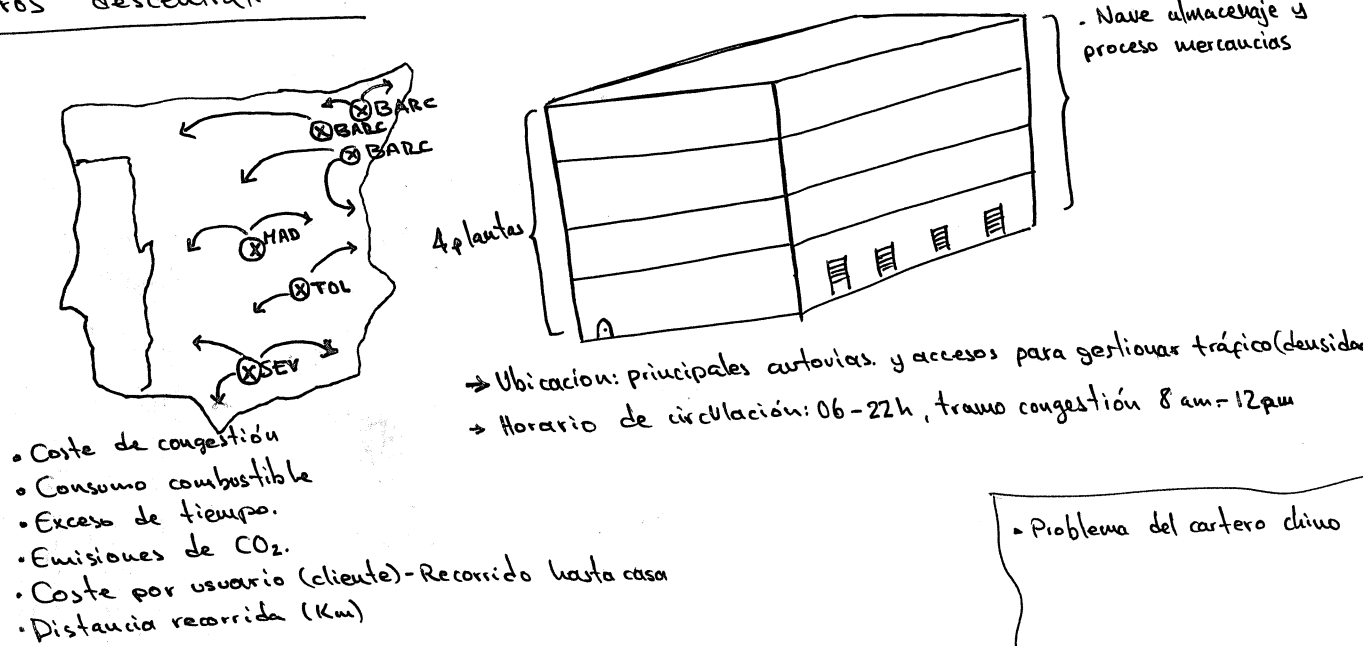 . Nave almacenaje y
proceso mercancias
BARC
BARC
BARC
MAD
TOL
SEV
4 plantas
→ Ubicacion: principales autovias. y accesos para gestionar tráfico (densidad
→ Horario de circulación: 06-22h, tramo congestión 8 am-12pm
• Coste de congestión
• Consumo combustible
• Exceso de tiempo.
• Emisiones de CO2.
• Coste por usuario (cliente)-Recorrido hasta casa
• Distancia recorrida (Km)
• Problema del cartero chino